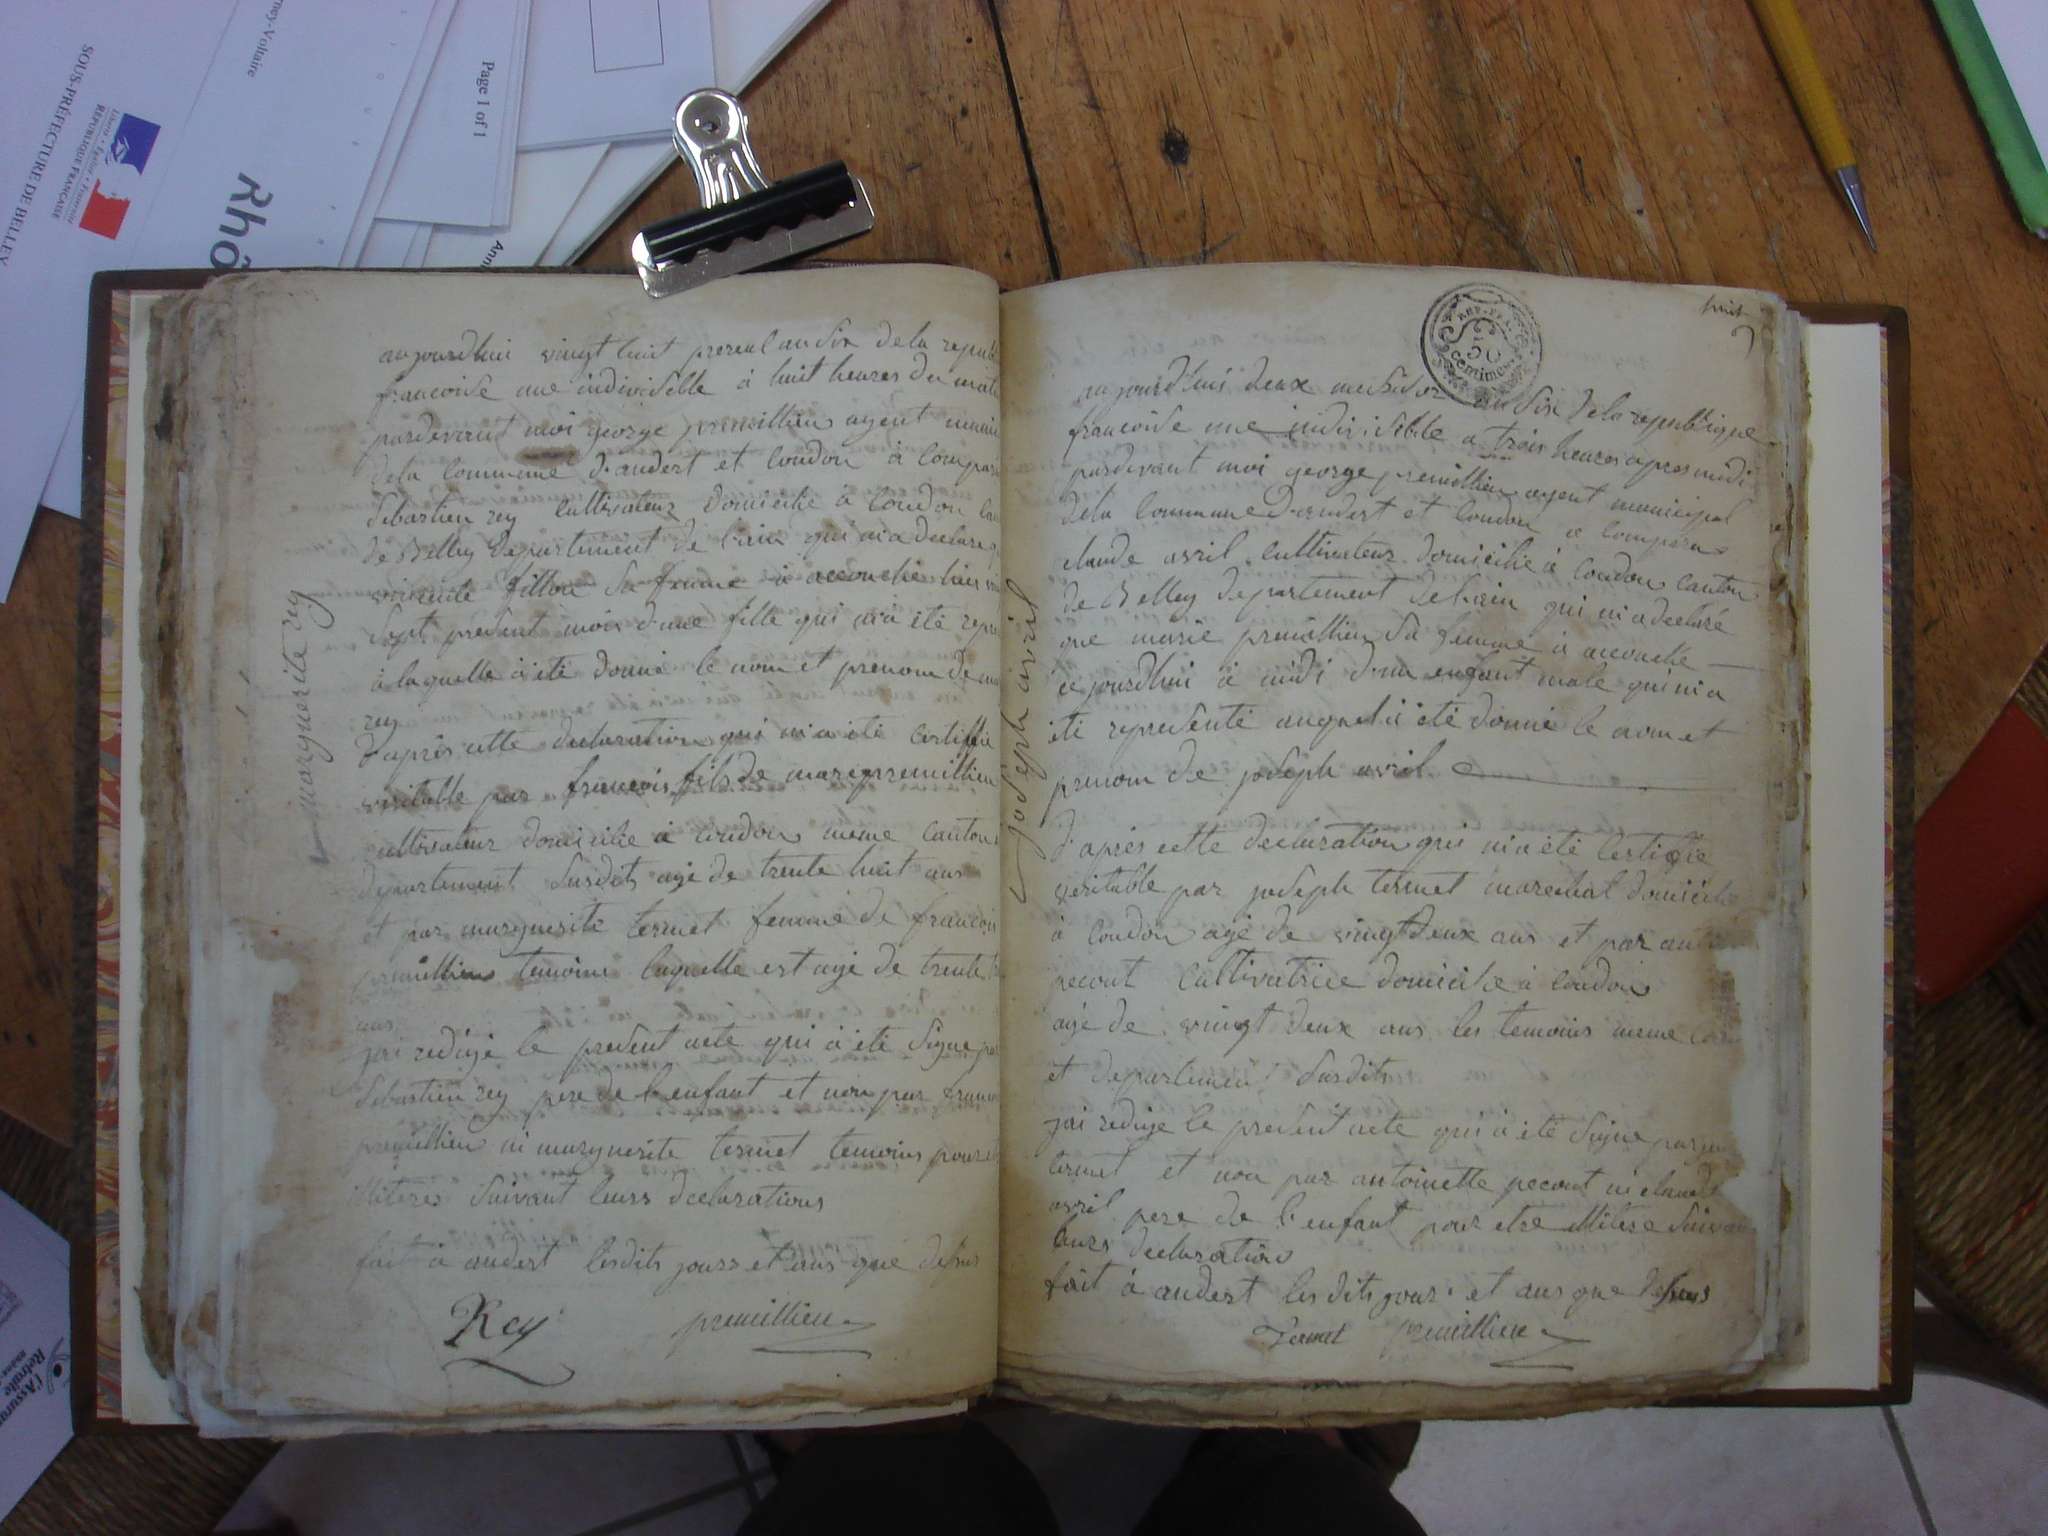 SOUS-PRÉFECTURE DE BELLEY
Liberté • Égalité • Fraternité
RÉPUBLIQUE FRANÇAISE
rney-Voltaire
Rhô
Page 1 of 1
Ann
l'Assura
Retraite
marguerite rey
aujourdhui vingt huit prereal an six de la repub
francoise une indivisible à huit heures du mat
pardevant moi george premillieu agent munic
de la commune d'andert et condon à compar
sebastien rey cultivateur domicilie à condon can
de Belley departement de l'ain qui m'a declare q
fillion sa femme à accouché hier vin
sept present mois d'une fille qui m'a été repre
à laquelle à été donné le nom et prenom de ma
rey
d'après cette declaration qui m'a été certiffié
veritable par francois fils de marc premillieu
cultivateur domicilie à condon meme canton
departement susdits agé de trente huit ans
et par marguerite termet femme de francois
premillieu temoins laquelle est agé de trente
ans
jai redigé le present acte qui à été signé par
sebastien rey pere de l'enfant et non par franco
premillieu ni marguerite termet temoins pour et
illiteres suivant leurs declarations
fait à andert lesdits jours et ans que desus
Rey premillieu
huit
REP. FRA.
50
centimes
joseph avril
aujourd'hui deux messidor an six de la republique
francoise une indivisible a trois heures apres midi
pardevant moi george premillieu agent municipal
de la commune d'andert et condon a comparu
claude avril cultivateur domicilié à condon canton
de Belley departement de l'ain qui m'a declaré
que marie premillieu sa femme à accouché
cejourdhui à midi d'un enfant male qui m'a
été representé auquel à été donné le nom et
prenom de joseph avril
d'après cette declaration qui m'a été certifié
veritable par joseph termet marechal domicili
à condon agé de vingt deux ans et par anto
pecout cultivatrice domicilie à condon
agé de vingt deux ans les temoins meme can
et departement susdits
jai redigé le present acte qui à été signé par
termet et non par antoinette pecout ni claude
avril pere de l'enfant pour etre illitere suivan
leurs declaration
fait à andert lesdits jour et ans que desus
Termet premillieu